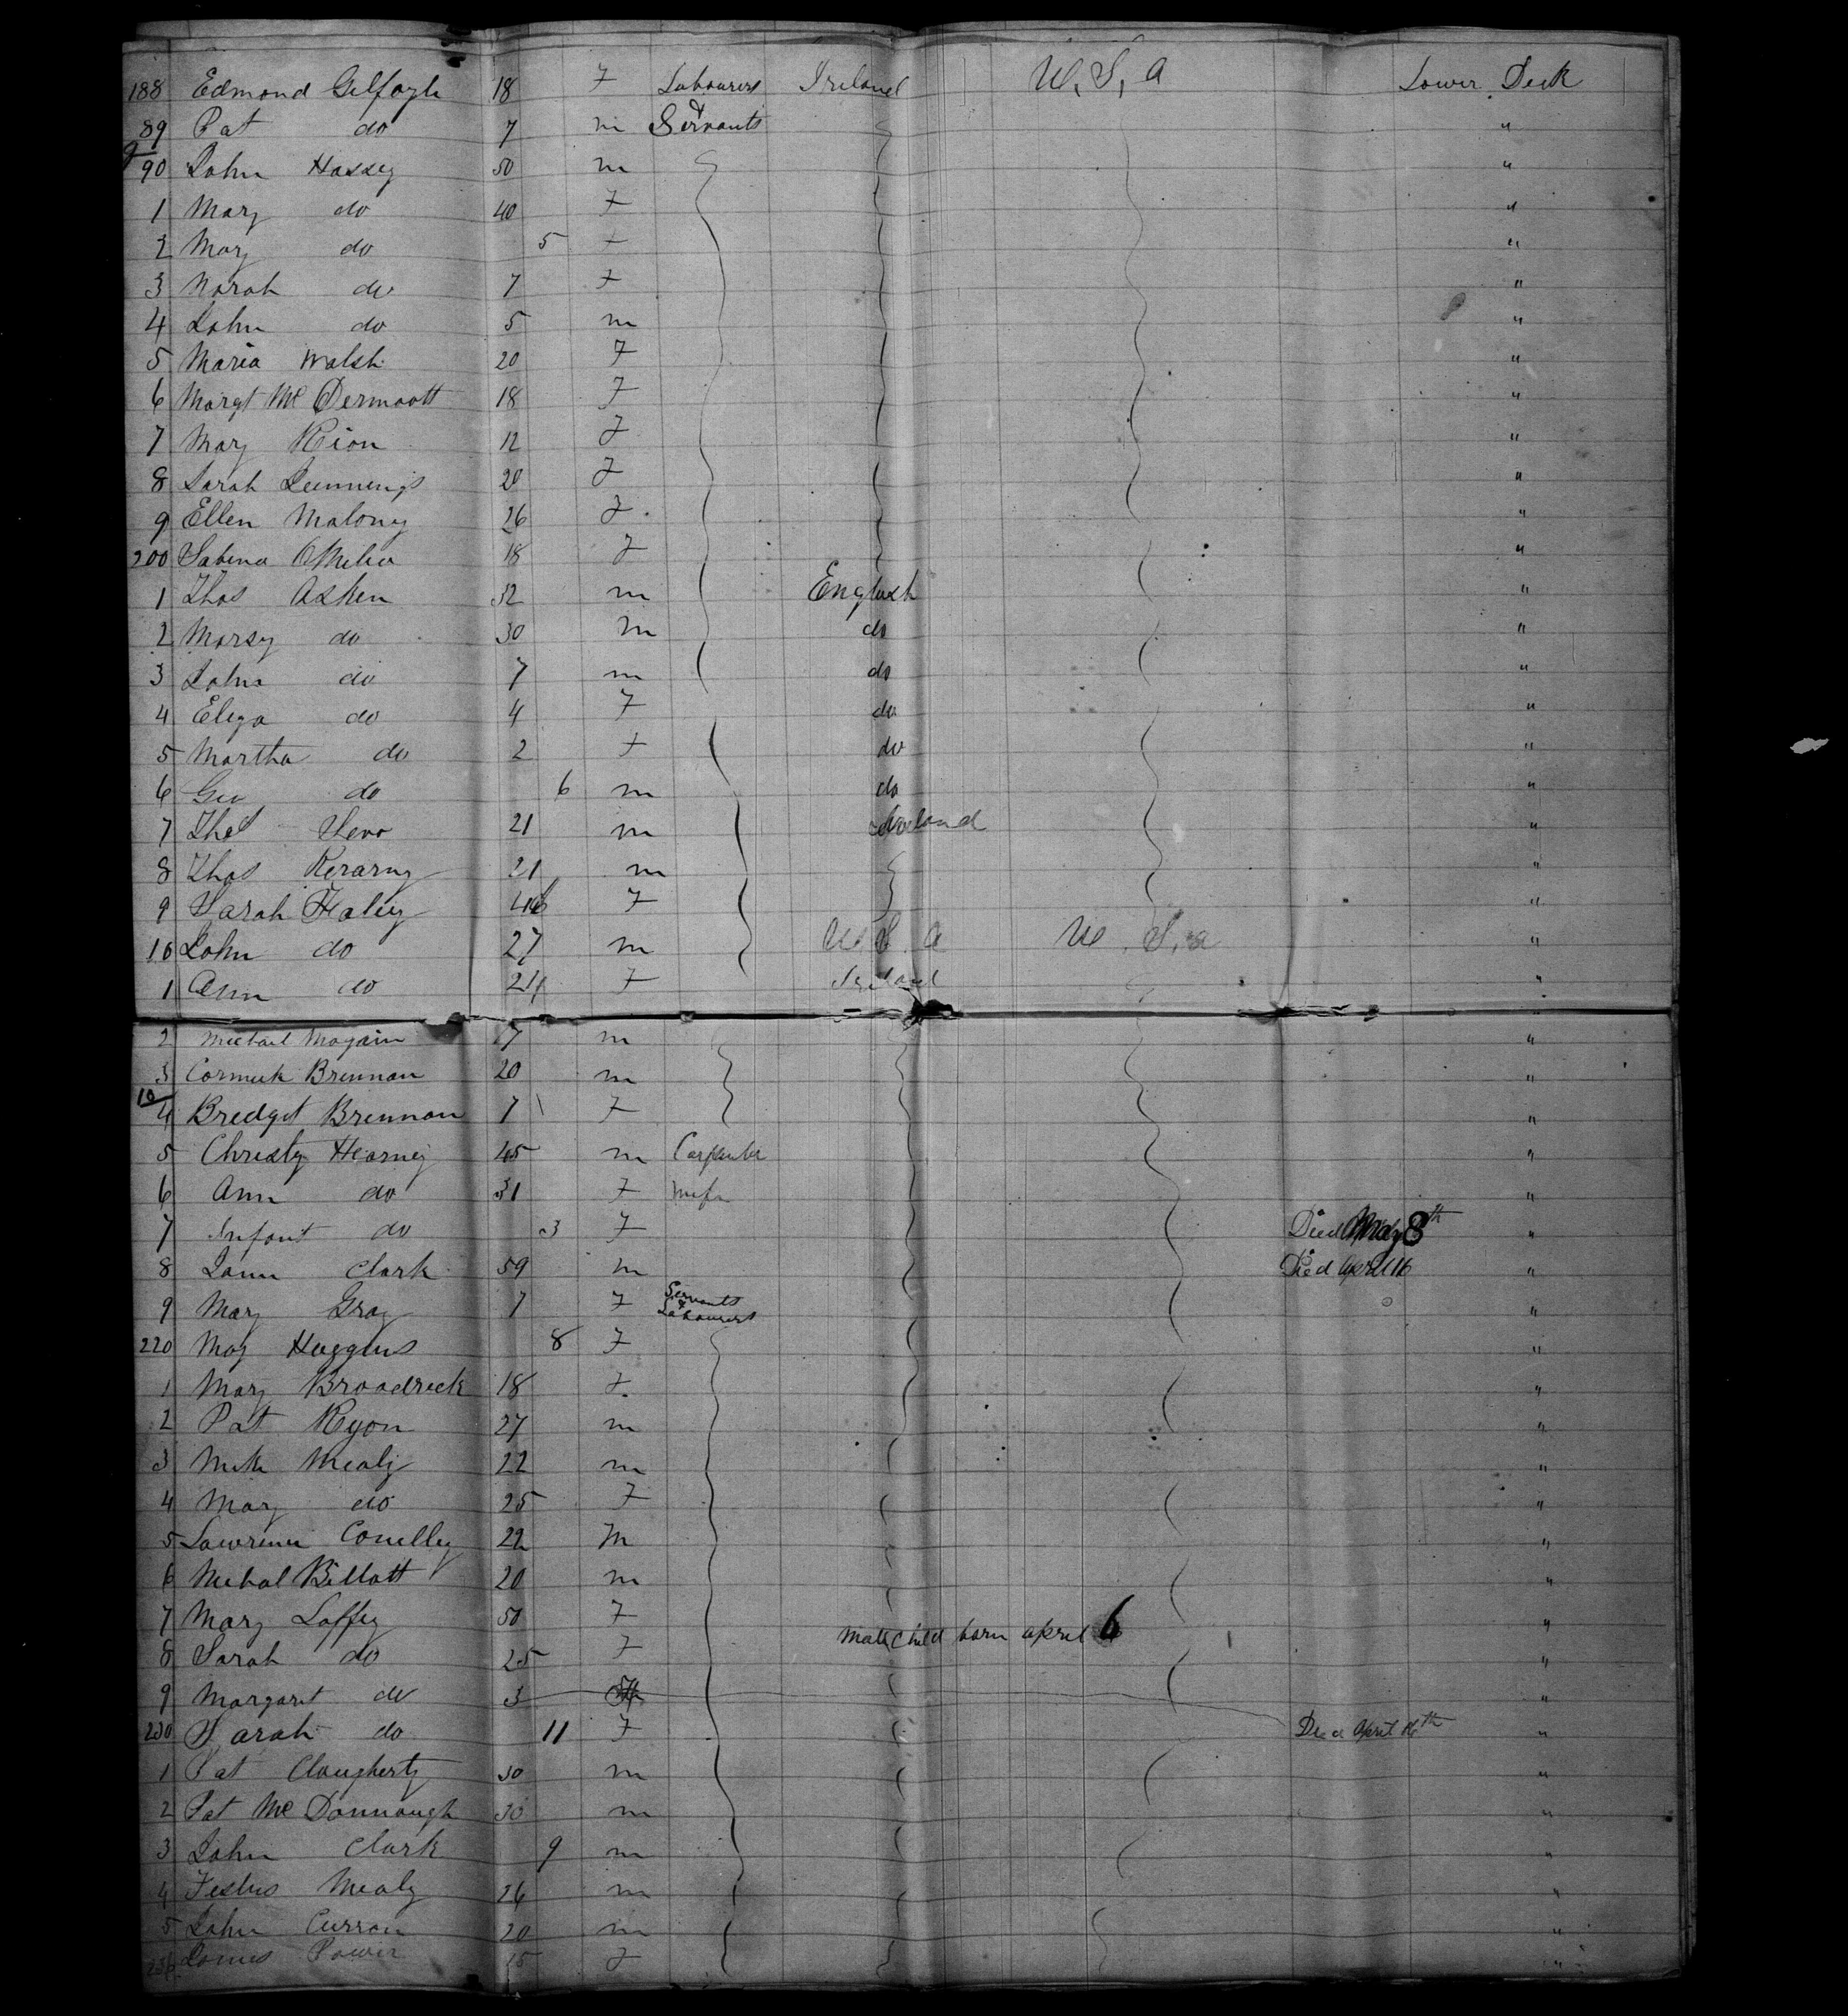 188 Edmond Gilfoyle 18 F Labourers Ireland U, S, A Lower Deck
89 Pat do 7 m & Servants "
90 John Hassey 50 m "
1 Mary do 40 F "
2 Mary do 5 F "
3 Norah do 7 F "
4 John do 5 m "
5 Maria Walsh 20 F "
6 Margt Mc Dermoott 18 F "
7 Mary Rion 12 F "
8 Sarah Jennings 20 F "
9 Ellen Maloney 26 F "
200 Sabina OMelia 18 F "
1 Thos Asken 32 m English "
2 Marsy do 30 m do "
3 John do 7 m do "
4 Eliza do 4 F do "
5 Martha do 2 F do "
6 Geo do 6 m do "
7 Thos 21 m Ireland "
8 Thos Kerarny 21 m "
9 Sarah Haley F "
10 John do 27 m U S. A U. S, a "
1 Ann do 24 F Ireland "
2 Michail Magain 17 m "
3 Cormick Brennan 20 m "
10
4 Bredget Brennan 7 F "
5 Christy Hearney 45 m Carpenter "
6 Ann do 31 F Wife "
7 Infant do 3 F Died May 8th "
8 Clark 59 m Died April 16 "
9 Mary Gray 7 F Servants & Labourers "
220 May Huggins 8 F "
1 Mary Broadreck 18 F "
2 Pat Ryon 27 m "
3 Mik Mealy 22 m "
4 Mary do 25 F "
5 Lawrence Conelley 22 m "
6 Mehal Billott 20 m "
7 Mary Laffey 50 F "
Male Child born april 6
8 Sarah do 25 F "
9 Margaret do 3 "
230 Sarah do 11 F Died April 16th "
1 Pat Claugherty 30 m "
2 Pat Mc Donnough 30 m "
3 John Clark 9 m "
4 Festus Mealy 26 m "
5 John Curran 20 m "
236 James Power 15 F "